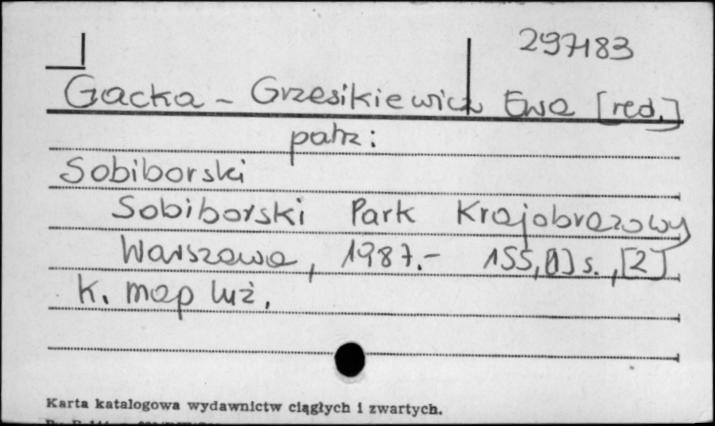 297183
Gacka - Grzesikiewicz Ewa [red.]
patrz:
Sobiborski
Sobiborski Park Krajobrazowy
Warszawa, 1987.- 155,[1] s., [2]
k. map luź.
Karta katalogowa wydawnictw ciągłych i zwartych.